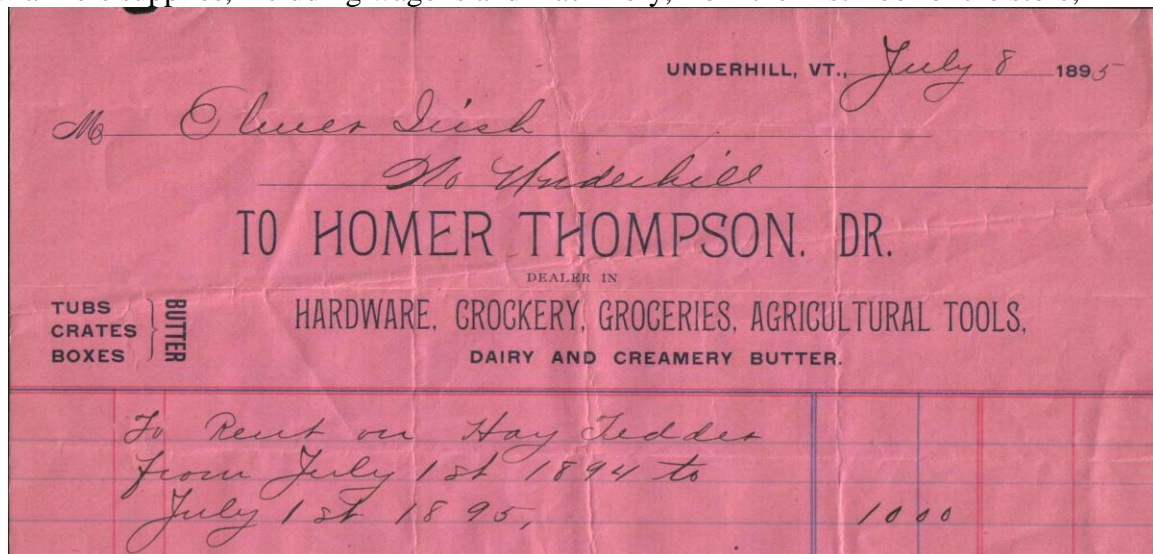 UNDERHILL, VT., July 8 1895
M Elmer Irish
No Underhill
TO HOMER THOMPSON. DR.
DEALER IN
TUBS
CRATES
BOXES
BUTTER
HARDWARE, CROCKERY, GROCERIES, AGRICULTURAL TOOLS,
DAIRY AND CREAMERY BUTTER.
To Rent on Hay Tedder
from July 1st 1894 to
July 1st 1895, 10 00